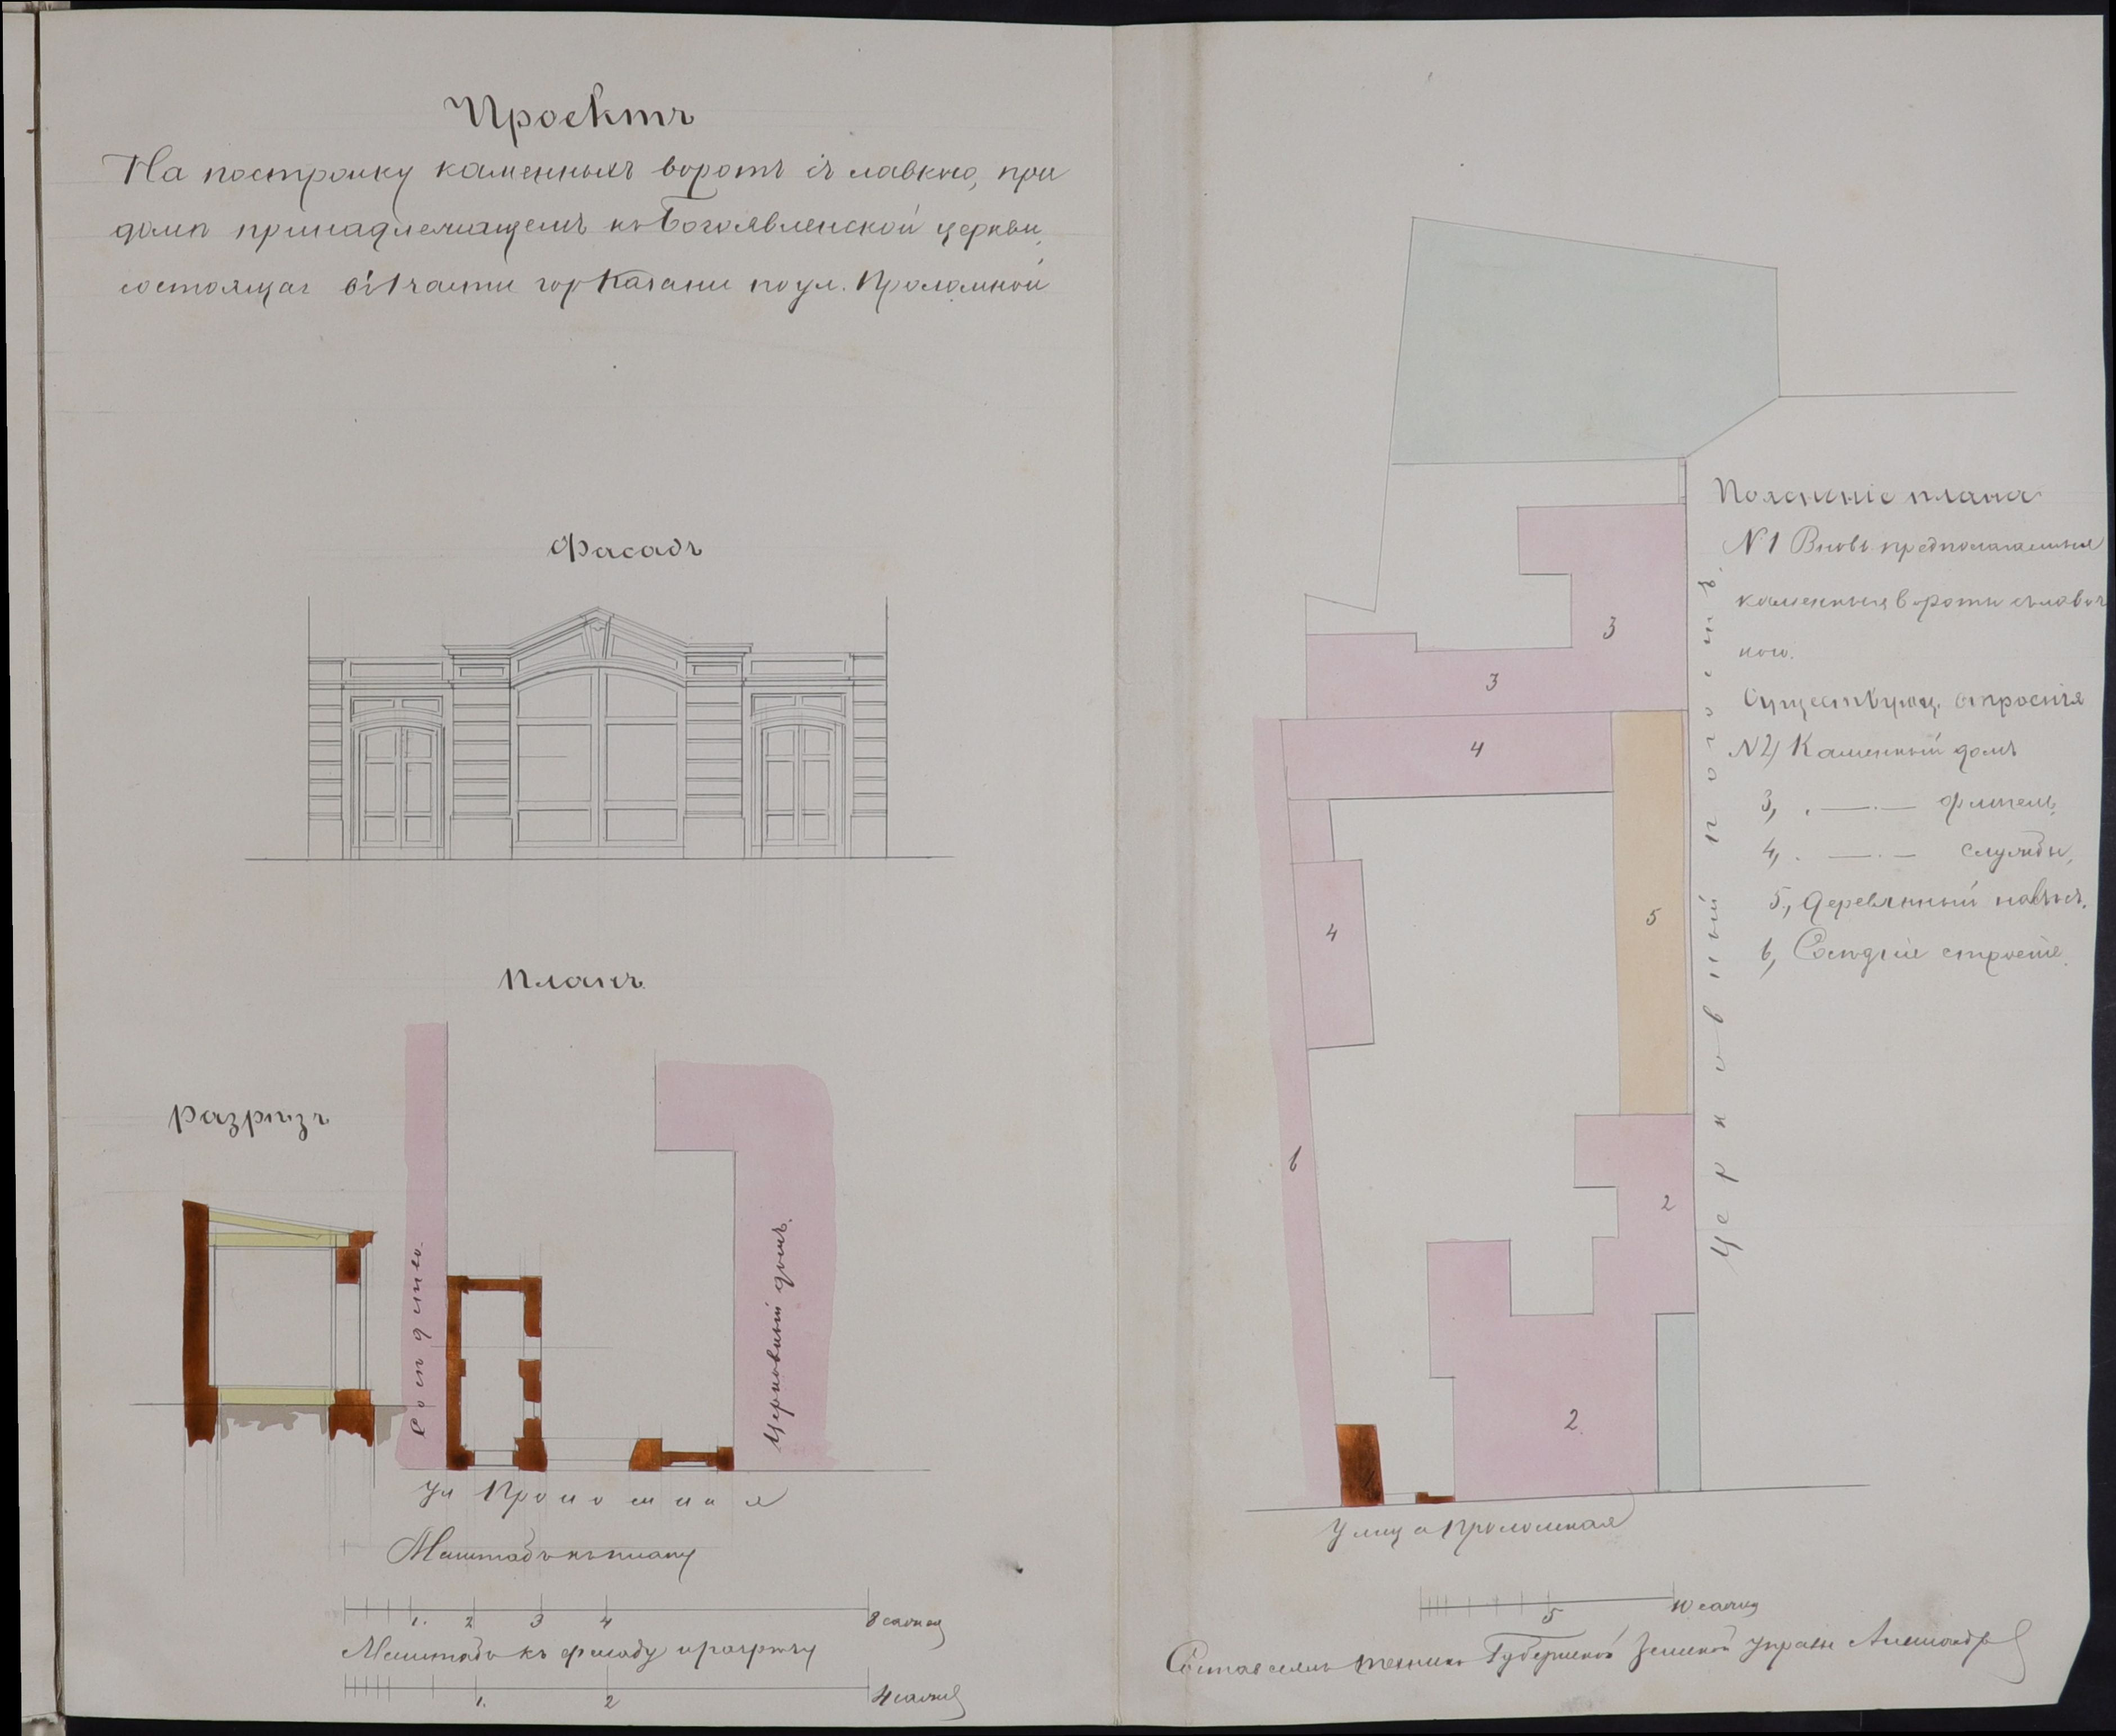 Проектъ
На постройку каменныхъ воротъ съ лавкою, при
домѣ принадлежащемъ къ Богоявленской церкви,
состоящаг въ 1 части гор Казани по ул. Проломной
Фасадъ
Планъ
Разрѣзъ
Сосѣднее.
Церковный домъ.
Ул Проломная
Масштабъ къ плану
1. 2 3 4 8 сажен
Масштабъ къ фасаду и разрѣзу
1. 2 4 сажен
3
3
4
4
5
6
2
2
Церковный погостъ.
Улица Проломная
5 10 сажен
Поясненіе плана
N 1 Вновь предполагаемыя
каменныя вороты съ лавоч
кою.
Существующ. строенія
N 2, Каменный домъ
3, — флигель,
4, — службы,
5, Деревянный навѣсъ,
6, Сосѣднiе строенiе.
Составлялъ техникъ Губернской Земской Управы